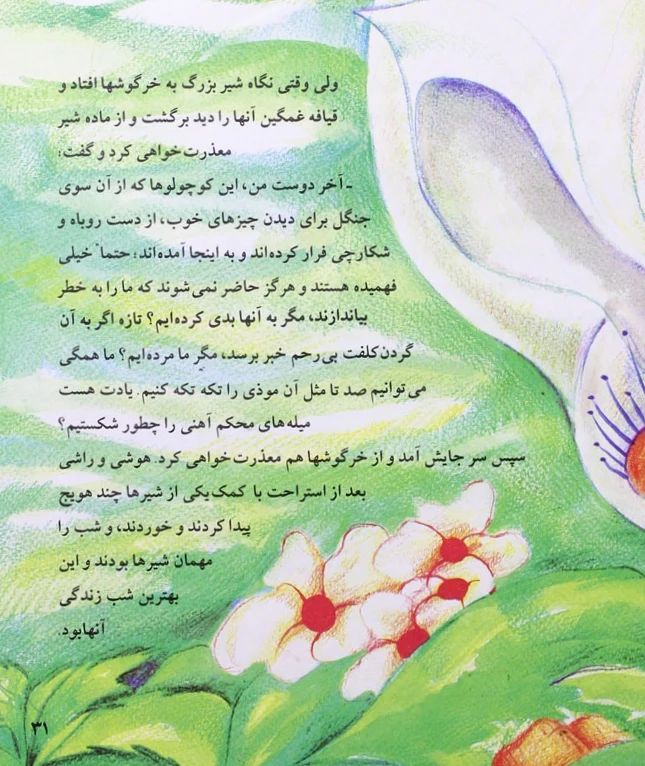 ولی وقتی نگاه شیر بزرگ به خرگوشها افتاد و
قیافه غمگین آنها را دید برگشت و از ماده شیر
معذرت‌خواهی کرد و گفت:
ـ آخر دوست من، این کوچولوها که از آن سوی
جنگل برای دیدن چیزهای خوب، از دست روباه و
شکارچی فرار کرده‌اند و به اینجا آمده‌اند؛ حتماً خیلی
فهمیده هستند و هرگز حاضر نمی‌شوند که ما را به خطر
بیاندازند، مگر به آنها بدی کرده‌ایم؟ تازه اگر به آن
گردن‌کلفت بی‌رحم خبر برسد، مگر ما مرده‌ایم؟ ما همگی
می‌توانیم صد تا مثل آن موذی را تکه تکه کنیم. یادت هست
میله‌های محکم آهنی را چطور شکستیم؟
سپس سر جایش آمد و از خرگوشها هم معذرت‌خواهی کرد. هوشی و راشی
بعد از استراحت با کمک یکی از شیرها چند هویج
پیدا کردند و خوردند، و شب را
مهمان شیرها بودند و این
بهترین شب زندگی
آنهابود.
۳۱